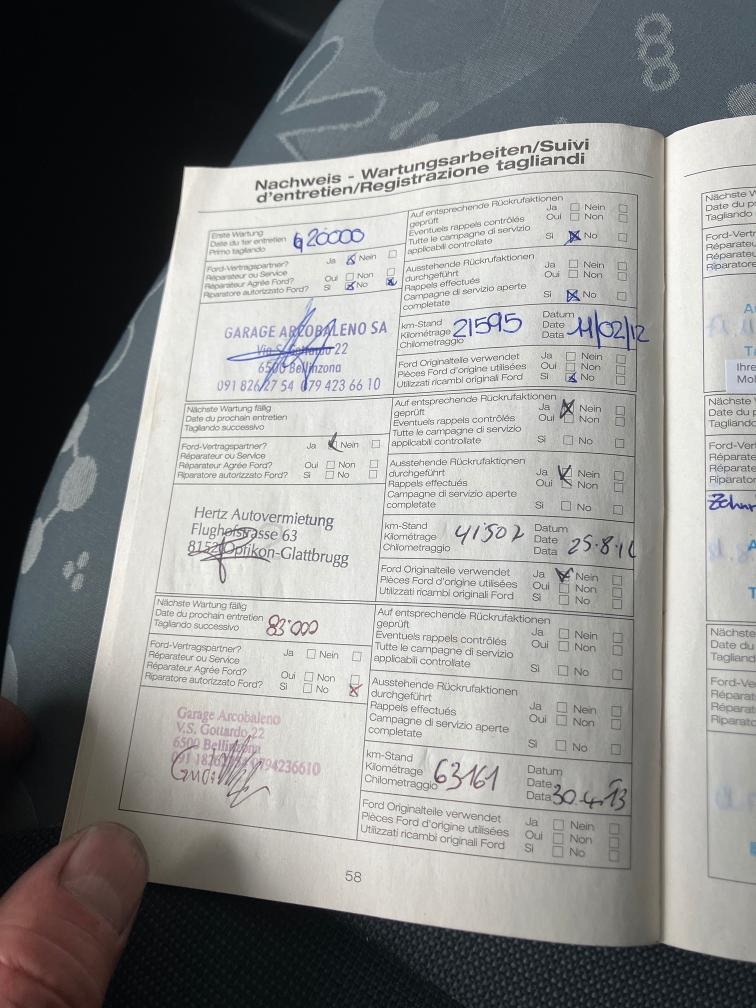 Nachweis - Wartungsarbeiten/Suivi
d'entretien/Registrazione tagliandi
Erste Wartung
Date du 1er entretien
Primo tagliando
20000
Ford-Vertragspartner?
Réparateur ou Service
Réparateur Agrée Ford?
Riparatore autorizzato Ford?
Ja Nein
Oui Non
Si No
GARAGE ARCOBALENO SA
Via S. Gottardo 22
6500 Bellinzona
091 826 27 54 079 423 66 10
Auf entsprechende Rückrufaktionen
geprüft
Eventuels rappels contrôlés
Tutte le campagne di servizio
applicabili controllate
Ja Nein
Oui Non
Si No
Ausstehende Rückrufaktionen
durchgeführt
Rappels effectués
Campagne di servizio aperte
completate
Ja Nein
Oui Non
Si No
km-Stand
Kilométrage
Chilometraggio
21595
Datum
Date
Data
11/02/12
Ford Originalteile verwendet
Pièces Ford d'origine utilisées
Utilizzati ricambi originali Ford
Ja Nein
Oui Non
Si No
Nächste Wartung fällig
Date du prochain entretien
Tagliando successivo
Ford-Vertragspartner?
Réparateur ou Service
Réparateur Agrée Ford?
Riparatore autorizzato Ford?
Ja Nein
Oui Non
Si No
Hertz Autovermietung
Flughofstrasse 63
8152 Opfikon-Glattbrugg
Auf entsprechende Rückrufaktionen
geprüft
Eventuels rappels contrôlés
Tutte le campagne di servizio
applicabili controllate
Ja Nein
Oui Non
Si No
Ausstehende Rückrufaktionen
durchgeführt
Rappels effectués
Campagne di servizio aperte
completate
Ja Nein
Oui Non
Si No
km-Stand
Kilométrage
Chilometraggio
41502
Datum
Date
Data
Ford Originalteile verwendet
Pièces Ford d'origine utilisées
Utilizzati ricambi originali Ford
Ja Nein
Oui Non
Si No
Nächste Wartung fällig
Date du prochain entretien
Tagliando successivo
83'000
Ford-Vertragspartner?
Réparateur ou Service
Réparateur Agrée Ford?
Riparatore autorizzato Ford?
Ja Nein
Oui Non
Si No
Garage Arcobaleno
V.S. Gottardo 22
6500 Bellinzona
Auf entsprechende Rückrufaktionen
geprüft
Eventuels rappels contrôlés
Tutte le campagne di servizio
applicabili controllate
Ja Nein
Oui Non
Si No
Ausstehende Rückrufaktionen
durchgeführt
Rappels effectués
Campagne di servizio aperte
completate
Ja Nein
Oui Non
Si No
km-Stand
Kilométrage
Chilometraggio
63161
Datum
Date
Data
30.4.13
Ford Originalteile verwendet
Pièces Ford d'origine utilisées
Utilizzati ricambi originali Ford
Ja Nein
Oui Non
Si No
58